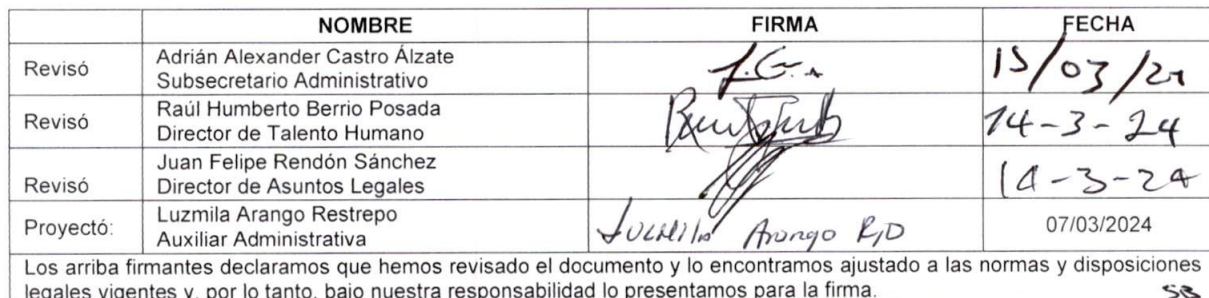 NOMBRE FIRMA FECHA
Revisó Adrián Alexander Castro Álzate
Subsecretario Administrativo 15/03/24
Revisó Raúl Humberto Berrio Posada
Director de Talento Humano 14-3-24
Revisó Juan Felipe Rendón Sánchez
Director de Asuntos Legales 14-3-24
Proyectó: Luzmila Arango Restrepo
Auxiliar Administrativa Luzmila Arango R,D 07/03/2024
Los arriba firmantes declaramos que hemos revisado el documento y lo encontramos ajustado a las normas y disposiciones
legales vigentes y, por lo tanto, bajo nuestra responsabilidad lo presentamos para la firma.